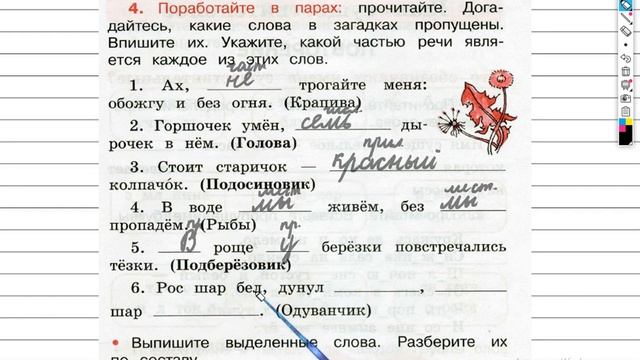 4. Поработайте в парах: прочитайте. Дога-
дайтесь, какие слова в загадках пропущены.
Впишите их. Укажите, какой частью речи явля-
ется каждое из этих слов.
част
1. Ах, не трогайте меня:
обожгу и без огня. (Крапива)
числ.
2. Горшочек умён, семь ды-
рочек в нём. (Голова)
прил
3. Стоит старичок — красный
колпачо́к. (Подосиновик)
мест мест.
4. В воде мы живём, без мы
пропадём. (Рыбы)
пр пр.
5. В роще у берёзки повстречались
тёзки. (Подберёзовик)
6. Рос шар бел, дунул ,
шар . (Одуванчик)
• Выпишите выделенные слова. Разберите их
по составу.